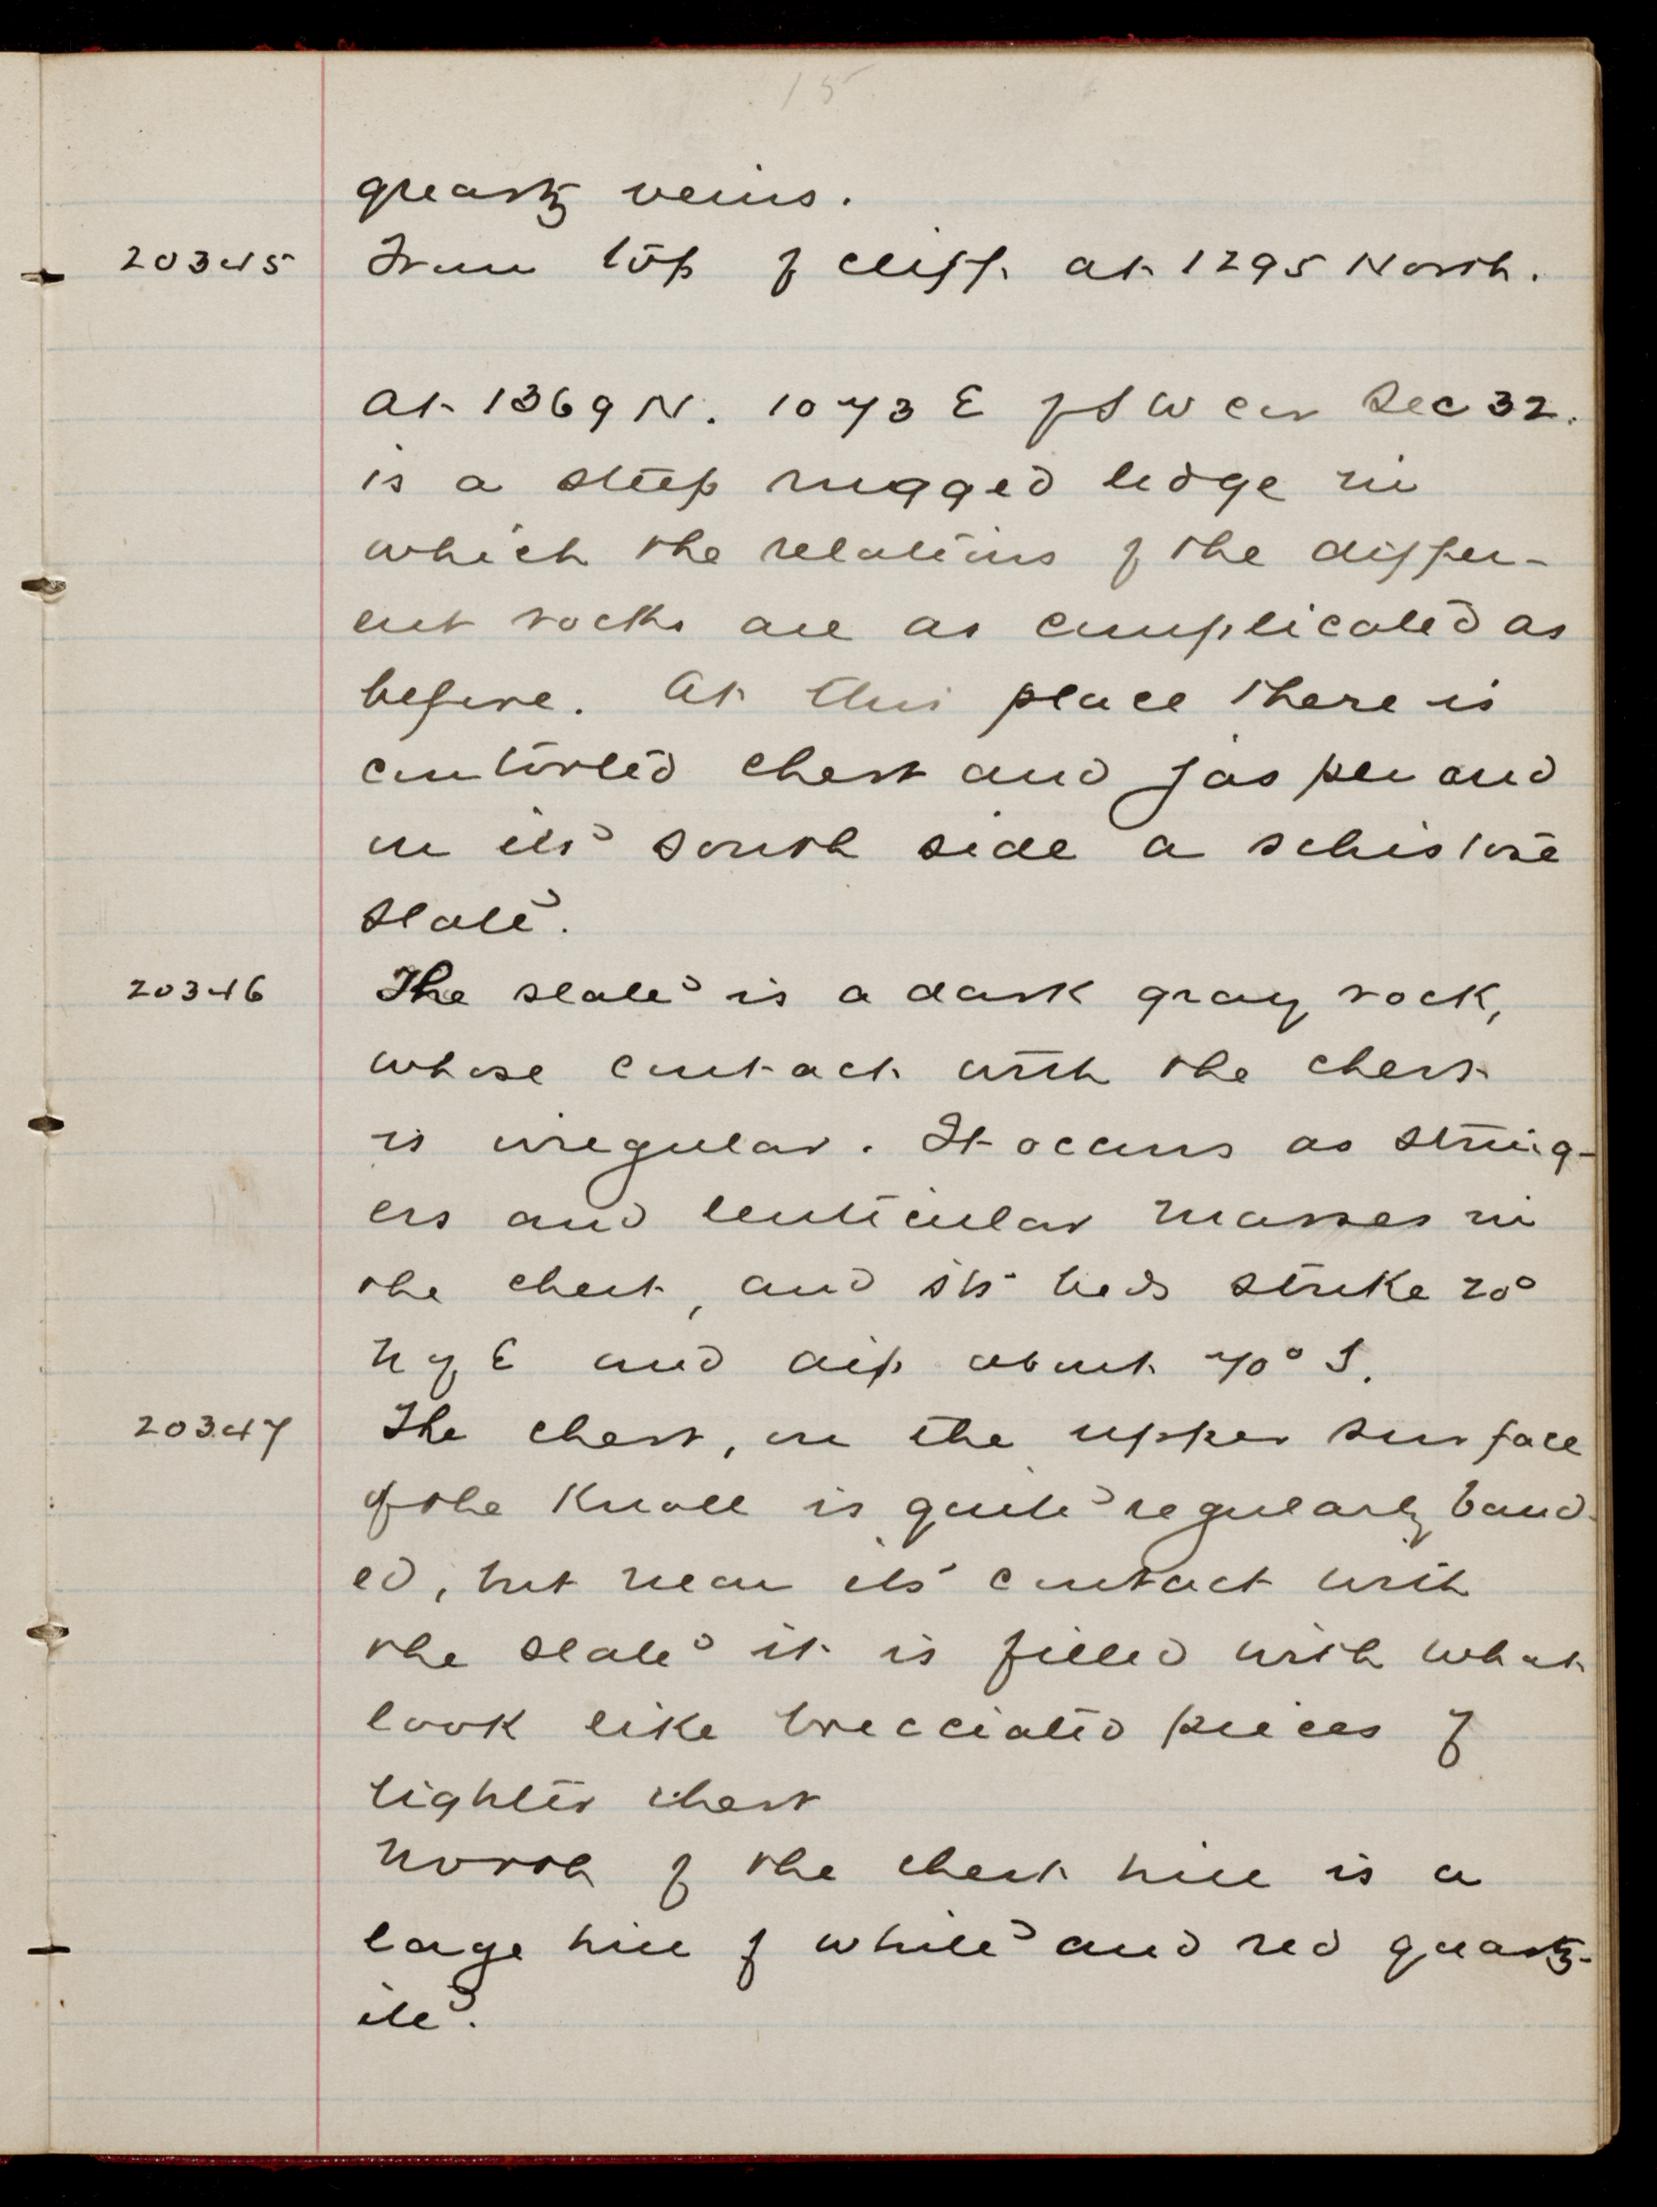 15
quartz veins.
20345 From top of cliff at 1295 North.
At 1369 N. 1073 E of SW cor Sec 32.
is a steep rugged ledge in
which the relations of the differ-
ent rocks are as complicated as
before. At this place there is
contorted chert and jasper and
on its south side a schistose
slate.
20346 The slate is a dark gray rock,
whose contact with the chert
is irregular. It occurs as string-
ers and lenticular masses in
the chert, and its beds strike 20°
N of E and dip about 70° S.
20347 The chert, on the upper surface
of the Knoll is quite regularly band-
ed, but near its contact with
the slate it is filled with what
look like brecciated pieces of
lighter chert
North of the chert hill is a
large hill of white and red quartz-
ite.